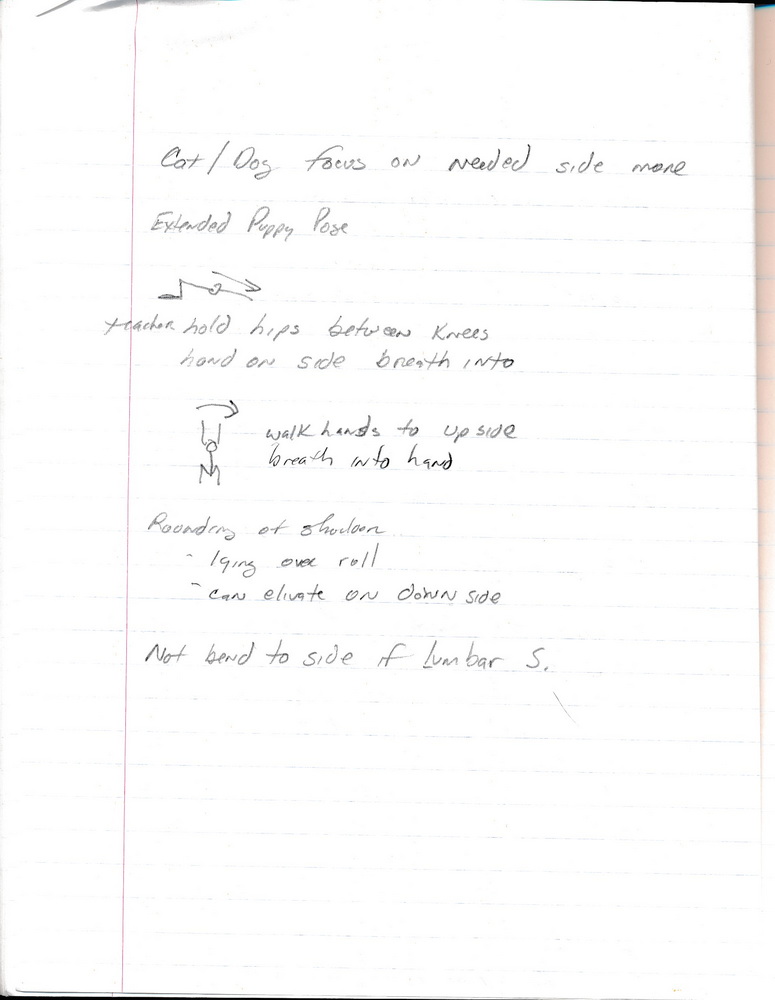 Cat/Dog focus on needed side more
Extended Puppy Pose
teacher hold hips between knees
hand on side breath into
walk hands to up side
breath into hand
Rounding of shoulder
- lying over roll
- can elivate on down side
Not bend to side if Lumbar S.